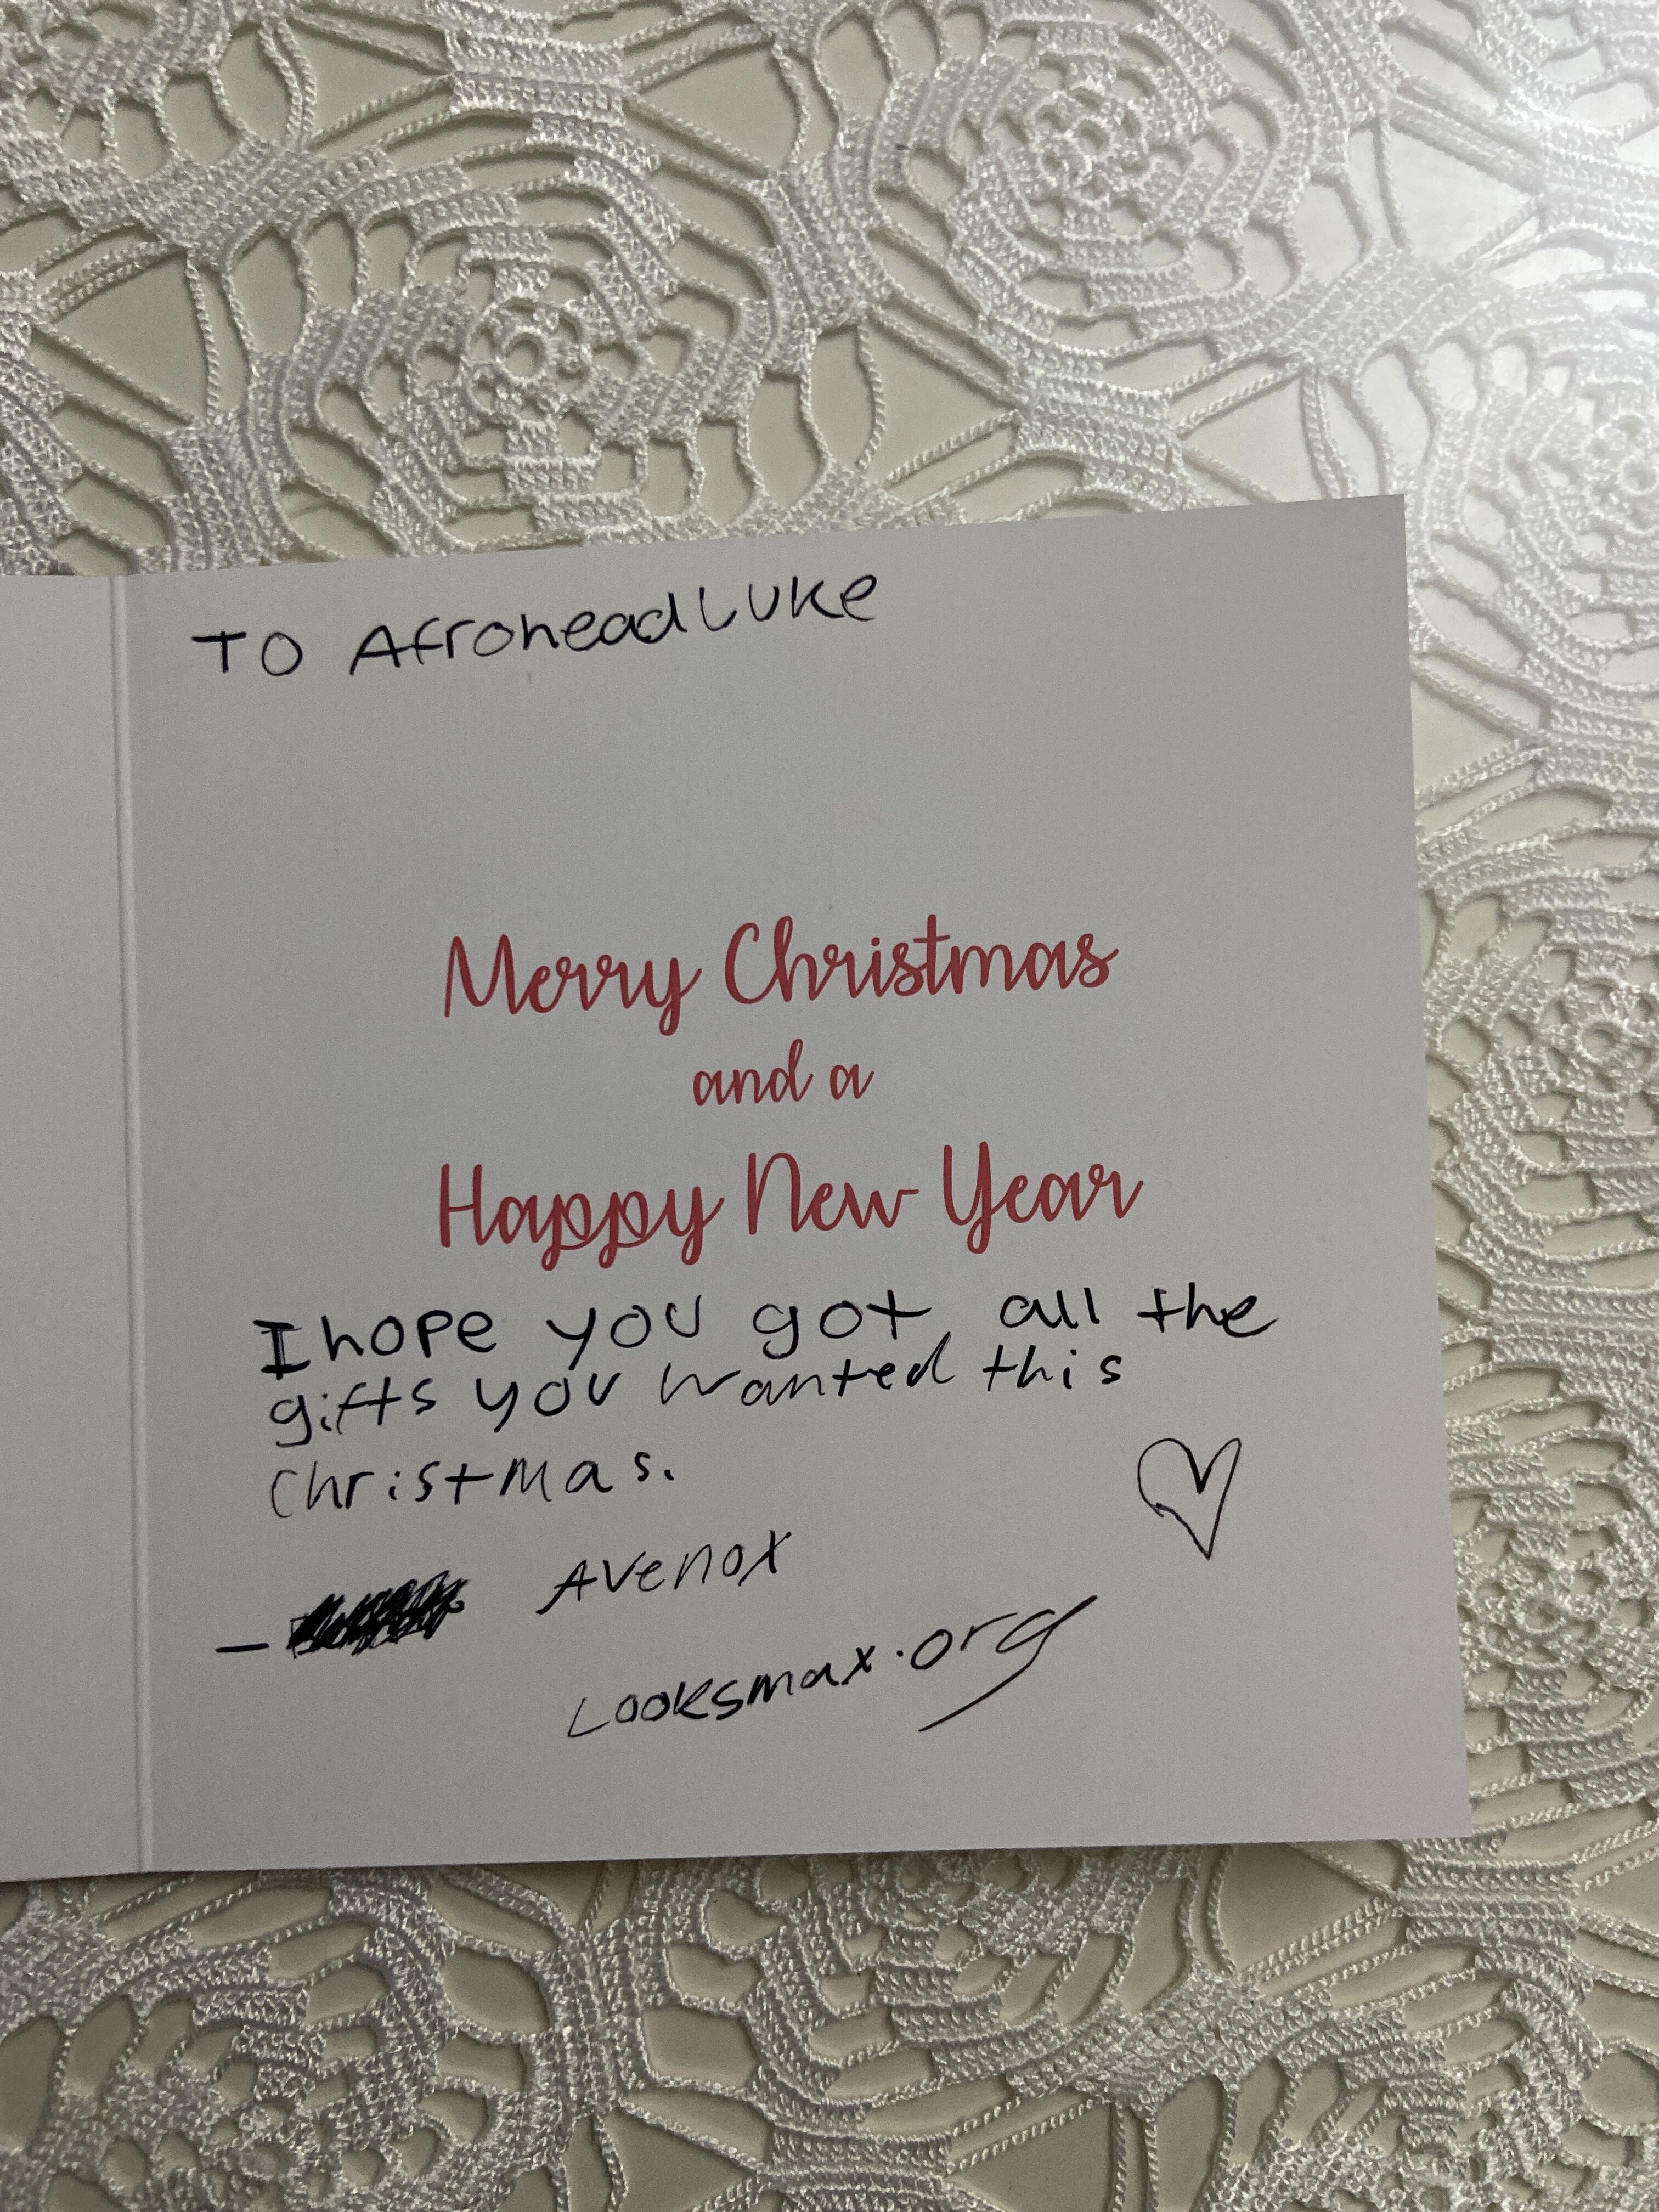 To AfroheadLuke
Merry Christmas
and a
Happy New Year
I hope you got all the
gifts you wanted this
Christmas.
- Avenox
Looksmax.org